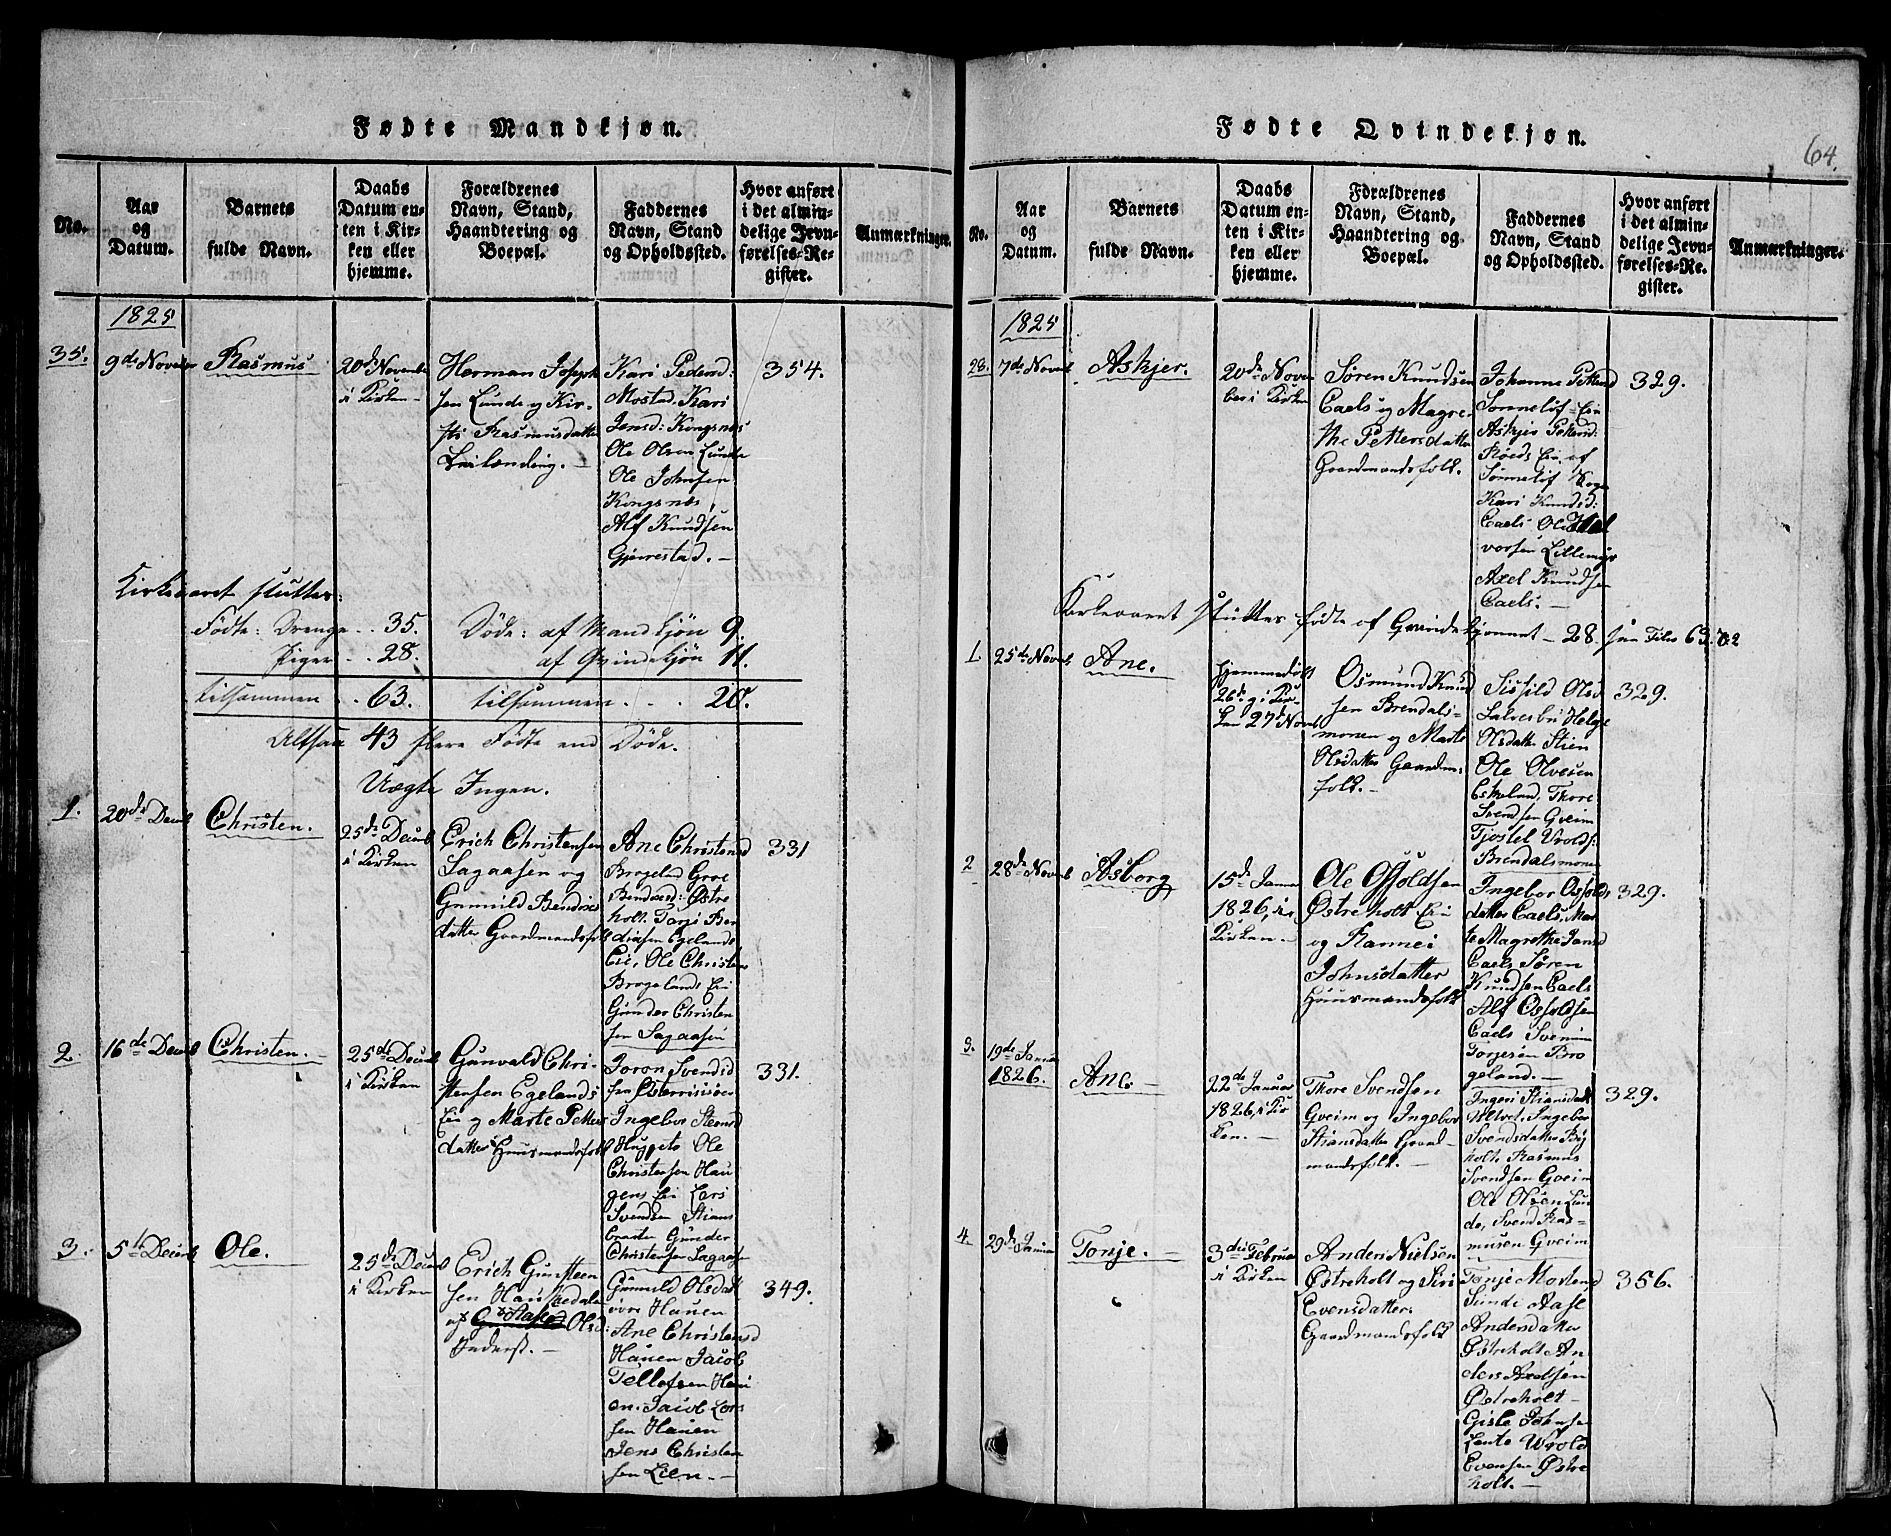 Fødte Mandkjøn.
No.
Aar
og
Datum.
Barnets
fulde Navn.
Daabs
Datum en-
ten i Kir-
ken eller
hjemme.
Forældrenes
Navn, Stand,
Haandtering og
Boepæl.
Faddernes
Navn, Stand
og Opholdssted.
Hvor anført
i det almin-
delige Jevn-
førelses-Re-
gister.
Anmærkninger.
1825
35.
9de Novem
Rasmus
20de Novemb
i Kirken
Herman Joseph
sen Lunde og Kir-
sti Rasmusdatter
Kari Pedersd:
Mostad. Kari
Jensd: Kongsnes
Ole Olsen Lunde
Ole Johnsen
Kongsnes,
Alf Knudsen
Gjerrestad.
354.
Kirkeaaret slutter:
Fødte: Drenge . . 35.
Døde: af Mandkjøn 9.
Piger . . 28.
af Qvindekjøn 11.
tilsammen . . 63.
tilsammen . . . 20.
Altsaa 43 flere Fødte end Døde.
Uægte Ingen.
1.
20de Decemb
Christen.
25de Decemb
i Kirken
Erich Christensen
Sagaasen og
Gunild Bendixs
datter Gaardmandsfolk
Ane Christensd
Brogeland Groe
Bendixsd: Østre
holt. Torje Ben
dixsen Egelands
Eie, Ole Christens
Brogelands Eie
Gunder Christen
sen Sagaasen
331
2.
16de Decemb
Christen.
25de Decemb
i Kirken
Gunvald Chri-
stensen Egelands
Eie og Marte Petters
datter Huusmandsfolk
Joron Svendsd
fra Østerrisøer
Ingebor Steensd
Huggeto Ole
Christensen Hau
gens Eie Lars
Svendsen Stians
Gunder
Christensen Sagaasen
331.
3.
5te Decemb
Ole.
25de Decemb
i Kirken
Erich Gunsteen
sen Hauskedalen
og Aase Olsd:
Inderst.
Gunild Olsdat
øvre Hauen
Ane Christensd
Hauen Jacob
Tellefsen Hau
en. Jacob Lars
sen Hauen
Jens Christen
sen Lien.
349.
Fødte Qvindekjøn.
64.
No.
Aar
og
Datum.
Barnets
fulde Navn.
Daabs
Datum en-
ten i Kir-
ken eller
hjemme.
Forældrenes
Navn, Stand,
Haandtering og
Boepæl.
Faddernes
Navn, Stand
og Opholdssted.
Hvor anført
i det almin-
delige Jevn-
førelses-Re-
gister.
Anmærkninger.
1825
28.
7de Novemb
Askjer.
20de Novem
ber i Kirken
Søren Knudsen
Caels og Magre
the Pettersdatter
Gaardmandsfolk.
Johanne Petersd
Sønneløf Eie
Askjer Petersd:
Røeds Eie af
Sønneløf Sogn
Kari Knudsd:
Caels Ole Hal
vorsen Lillemyr
Axel Knudsen
Caels.
329.
Kirkeaaret slutter fødte af Qvindekjønnet 28
1.
25de Novemb
Ane.
hjemmedøbt
26de og i Kir-
ken 27de Novemb
Osmund Knud
sen Brendals-
monen og Marte
Olsdatter Gaardm.
folk.
Sissild Olsd
Salvesbu Helge
Olsdatter Stien
Ole Olvesen
Eskeland, Thore
Svendsen Gveim
Tjostel Vrolds:
Brendalsmonen
329.
2
28de Novemb
Asborg
15de Januar
1826, i
Kirken.
Ole Osfoldsen
Østreholt Eie
og Rannei
Johnsdatter
Huusmandsfolk
Ingebor Osfolds
datter Caels, Mar
te Magrethe Jansd
Caels Søren
Knudsen Caels
Alf Osfoldsen
Caels Svenum
Torjesen Bro
geland.
329.
3.
19de Januar
1826.
Ane
22de Januar
1826, i Kir
ken.
Thore Svendsen
Gveim og Ingebor
Stiansdatter Gaard
mandsfolk.
Ingeri Stiansdatt
Ingebor
Svendsdatter By
holt. Rasmus
Svendsen Gveim
Ole Olsen Lun
de, Svend Ras-
musen Gveim
329.
4.
29de Januar
Tonje.
3die Februar
i Kirken
Anders Nielsen
Østreholt og Siri
Evensdatter.
Gaardmandsfolk
Tonje Mortensd
Sunde Aase
Andersdatter
Østreholt An
ders Axelsen
Østreholt
Gisle Johnsen
Lunte Wrold
Evensen Østre
holt.
356.